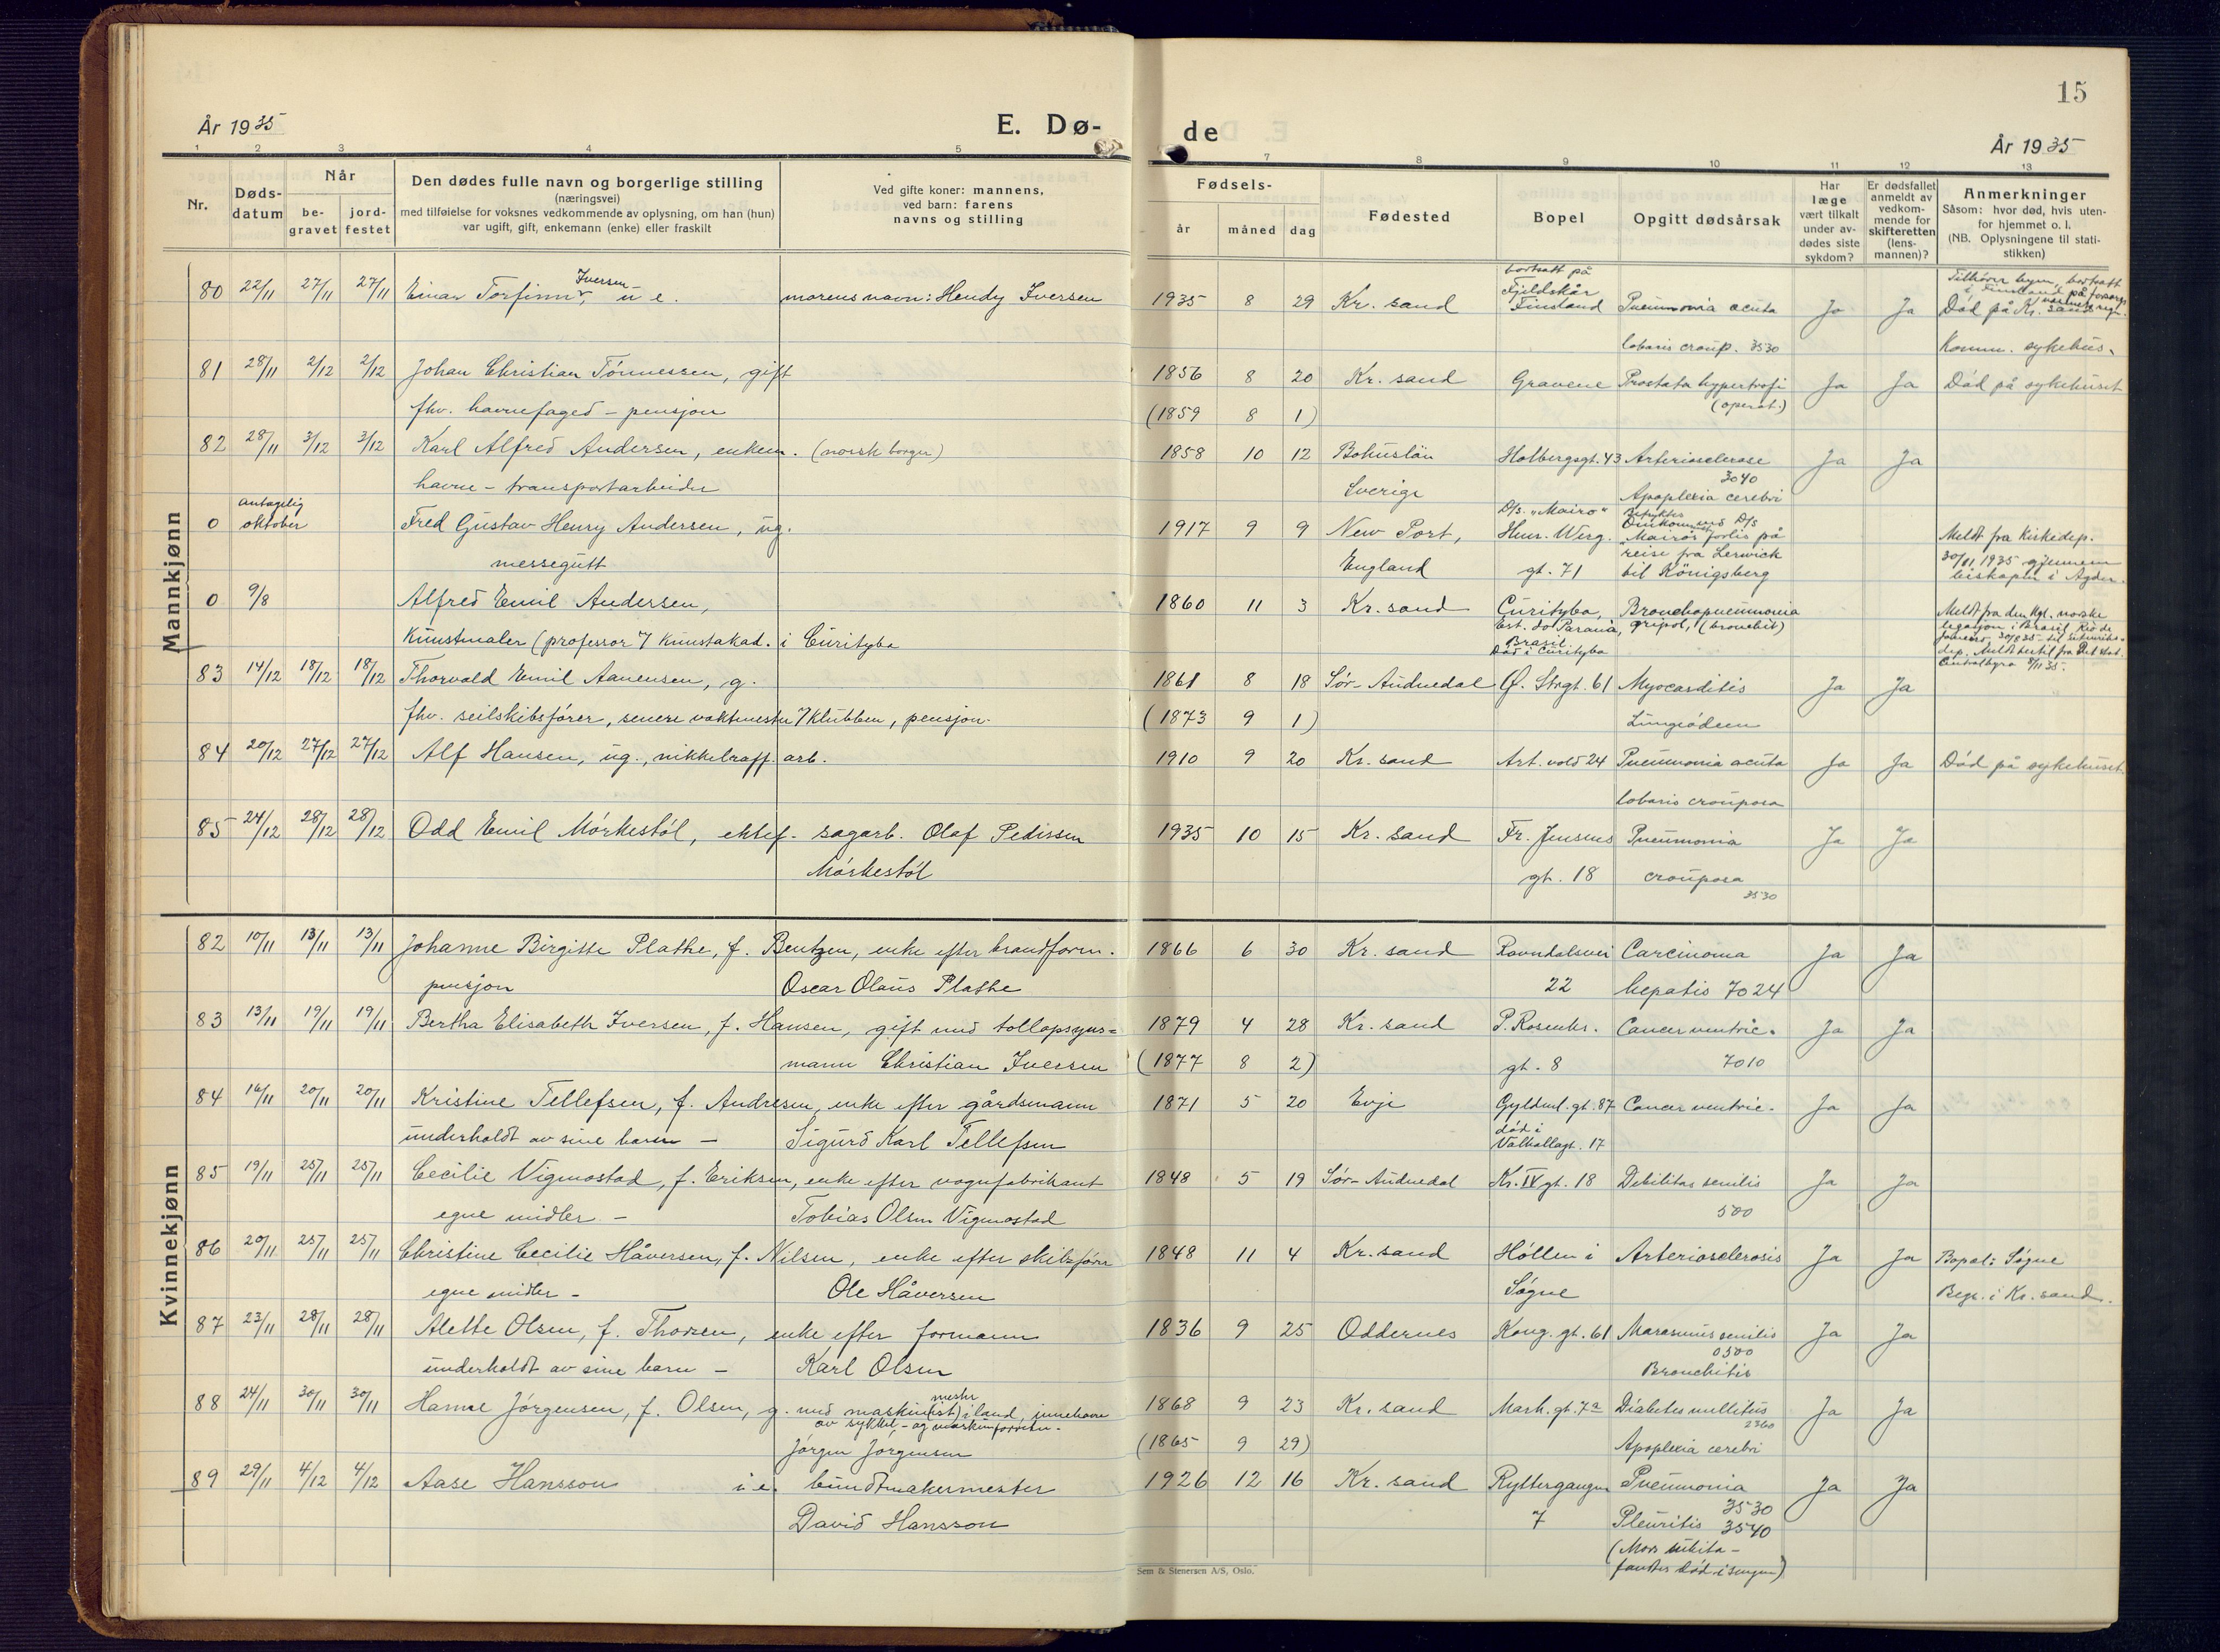 15
År 1935
E. Dø-
de
År 1935
1 2 3 4 5
7 8 9 10 11 12 13
Nr.
Døds-
datum
Når
be-
gravet
jord-
festet
Den dødes fulle navn og borgerlige stilling
(næringsvei)
med tilføielse for voksnes vedkommende av oplysning, om han (hun)
var ugift, gift, enkemann (enke) eller fraskilt
Ved gifte koner: mannens,
ved barn: farens
navns og stilling
Fødsels-
år måned dag
Fødested
Bopel
Opgitt dødsårsak
Har
læge
vært tilkalt
under av-
dødes siste
sykdom?
Er dødsfallet
anmeldt av
vedkom-
mende for
skifteretten
(lens-
mannen)?
Anmerkninger
Såsom: hvor død, hvis uten-
for hjemmet o. l.
(NB. Oplysningene til stati-
stikken)
Mannkjønn
80 22/11 27/11 27/11 Einar Torfinn Iversen, u e. morens navn: Hendy Iversen 1935 8 29 Kr. sand bortsatt på Fjeldskår Finsland Pneumonia acuta Ja Ja Død på Kr. sand
lobaris croup. 3530 Komm. sykehus.
81 28/11 2/12 2/12 Johan Christian Tönnessen, gift 1856 8 20 Kr. sand Gravene Prostata hypertrofi Ja Ja Död på sykehuset
fhv. havnefoged - pensjon (1859 8 1) (operat.)
82 28/11 3/12 3/12 Karl Alfred Andersen, enkem. (norsk borger) 1858 10 12 Bohuslän Holbergsgt. 43 Arteriosclerose Ja Ja
havne - transportarbeider Sverige 3040
Apoplexia cerebri
0 antagelig oktober Fred Gustav Henry Andersen, ug. 1917 9 9 New Port, D/s. "Mairo" Henr. Werg. Omkommet D/s Mairos forlis på Meldt fra Kirkedep.
messegutt England gt. 71 reise fra Lerwick til Königsberg 30/11 1935 gjennem biskopen i Agder.
0 9/8 Alfred Emil Andersen, 1860 11 3 Kr. sand Curityba, Bronchopneumonia Meldt fra den Kgl. norske
Kunstmaler (professor v/ Kunstakad. i Curityba Est. do Paraná, Brasil gripal, (bronchit) legasjon i Brasil Rio de
Død i Curityba
83 14/12 18/12 18/12 Thorvald Emil Aanensen, g. 1861 8 18 Sör-Audnedal Ø. Strgt. 61 Myocarditis Ja Ja
fhv. seilskibsfører, senere vaktmester v/ Klubben, pensjon. (1873 9 1) Lungeödem
84 20/12 27/12 27/12 Alf Hansen, ug., nikkelraff. arb. 1910 9 20 Kr. sand Art. vold 24 Pneumonia acuta Ja Ja Död på sykehuset
lobaris crouposa
85 24/12 28/12 28/12 Odd Emil Mörkestöl, ektef. sagarb. Olaf Pedersen 1935 10 15 Kr. sand Fr. Jensens Pneumonia Ja Ja
Mörkestöl gt. 18 crouposa
3530
Kvinnekjønn
82 10/11 13/11 13/11 Johanne Birgitte Plathe, f. Bentzen, enke efter brandform. 1866 6 30 Kr. sand Ravndalsvei Carcinoma Ja Ja
pensjon Oscar Olaus Plathe 22 hepatis 7024
83 13/11 19/11 19/11 Bertha Elisabeth Iversen, f. Hansen, gift med tollopsyns= 1879 4 28 Kr. sand P. Rosenkr. Cancer ventric. Ja Ja
mann Christian Iversen (1877 8 2) gt. 8 7010
84 16/11 20/11 20/11 Kristine Tellefsen, f. Andresen, enke efter gårdsmann 1871 5 20 Evje Gyldenl. gt. 87 Cancer ventric. Ja Ja
underholdt av sine barn - Sigurd Karl Tellefsen död i Valhallagt. 17
85 19/11 25/11 25/11 Cecilie Vigmostad, f. Eriksen, enke efter vognfabrikant 1848 5 19 Sör-Audnedal Kr. IV gt. 18 Debilitas senilis Ja Ja
egne midler - Tobias Olsen Vigmostad 500
86 20/11 25/11 25/11 Christine Cecilie Håversen, f. Nilsen, enke efter skibsförer 1848 11 4 Kr. sand Höllen i Arteriosclerosis Ja Ja Bopel: Søgne
egne midler - Ole Håversen Søgne Begr. i Kr. sand.
87 23/11 28/11 28/11 Alette Olsen, f. Thorsen, enke efter formann 1836 9 25 Oddernes Kong. gt. 61 Marasmus senilis Ja Ja
underholdt av sine barn - Karl Olsen 0500
Bronchitis
88 24/11 30/11 30/11 Hanne Jörgensen, f. Olsen, g. med maskin(ist) mester i land, innehaver 1868 9 23 Kr. sand Mark. gt. 7a Diabetes mellitus Ja Ja
av sykkel- og maskinforretn. 2360
Jörgen Jorgensen (1865 9 29) Apoplexia cerebri
89 29/11 4/12 4/12 Aase Hansson i e. bundtmakermester 1926 12 16 Kr. sand Ryttergangen Pneumonia Ja Ja
David Hansson 7 3530
Pleuritis 3540
(Mors subita -
fantes död i sengen)
Sem & Stenersen A/S, Oslo.